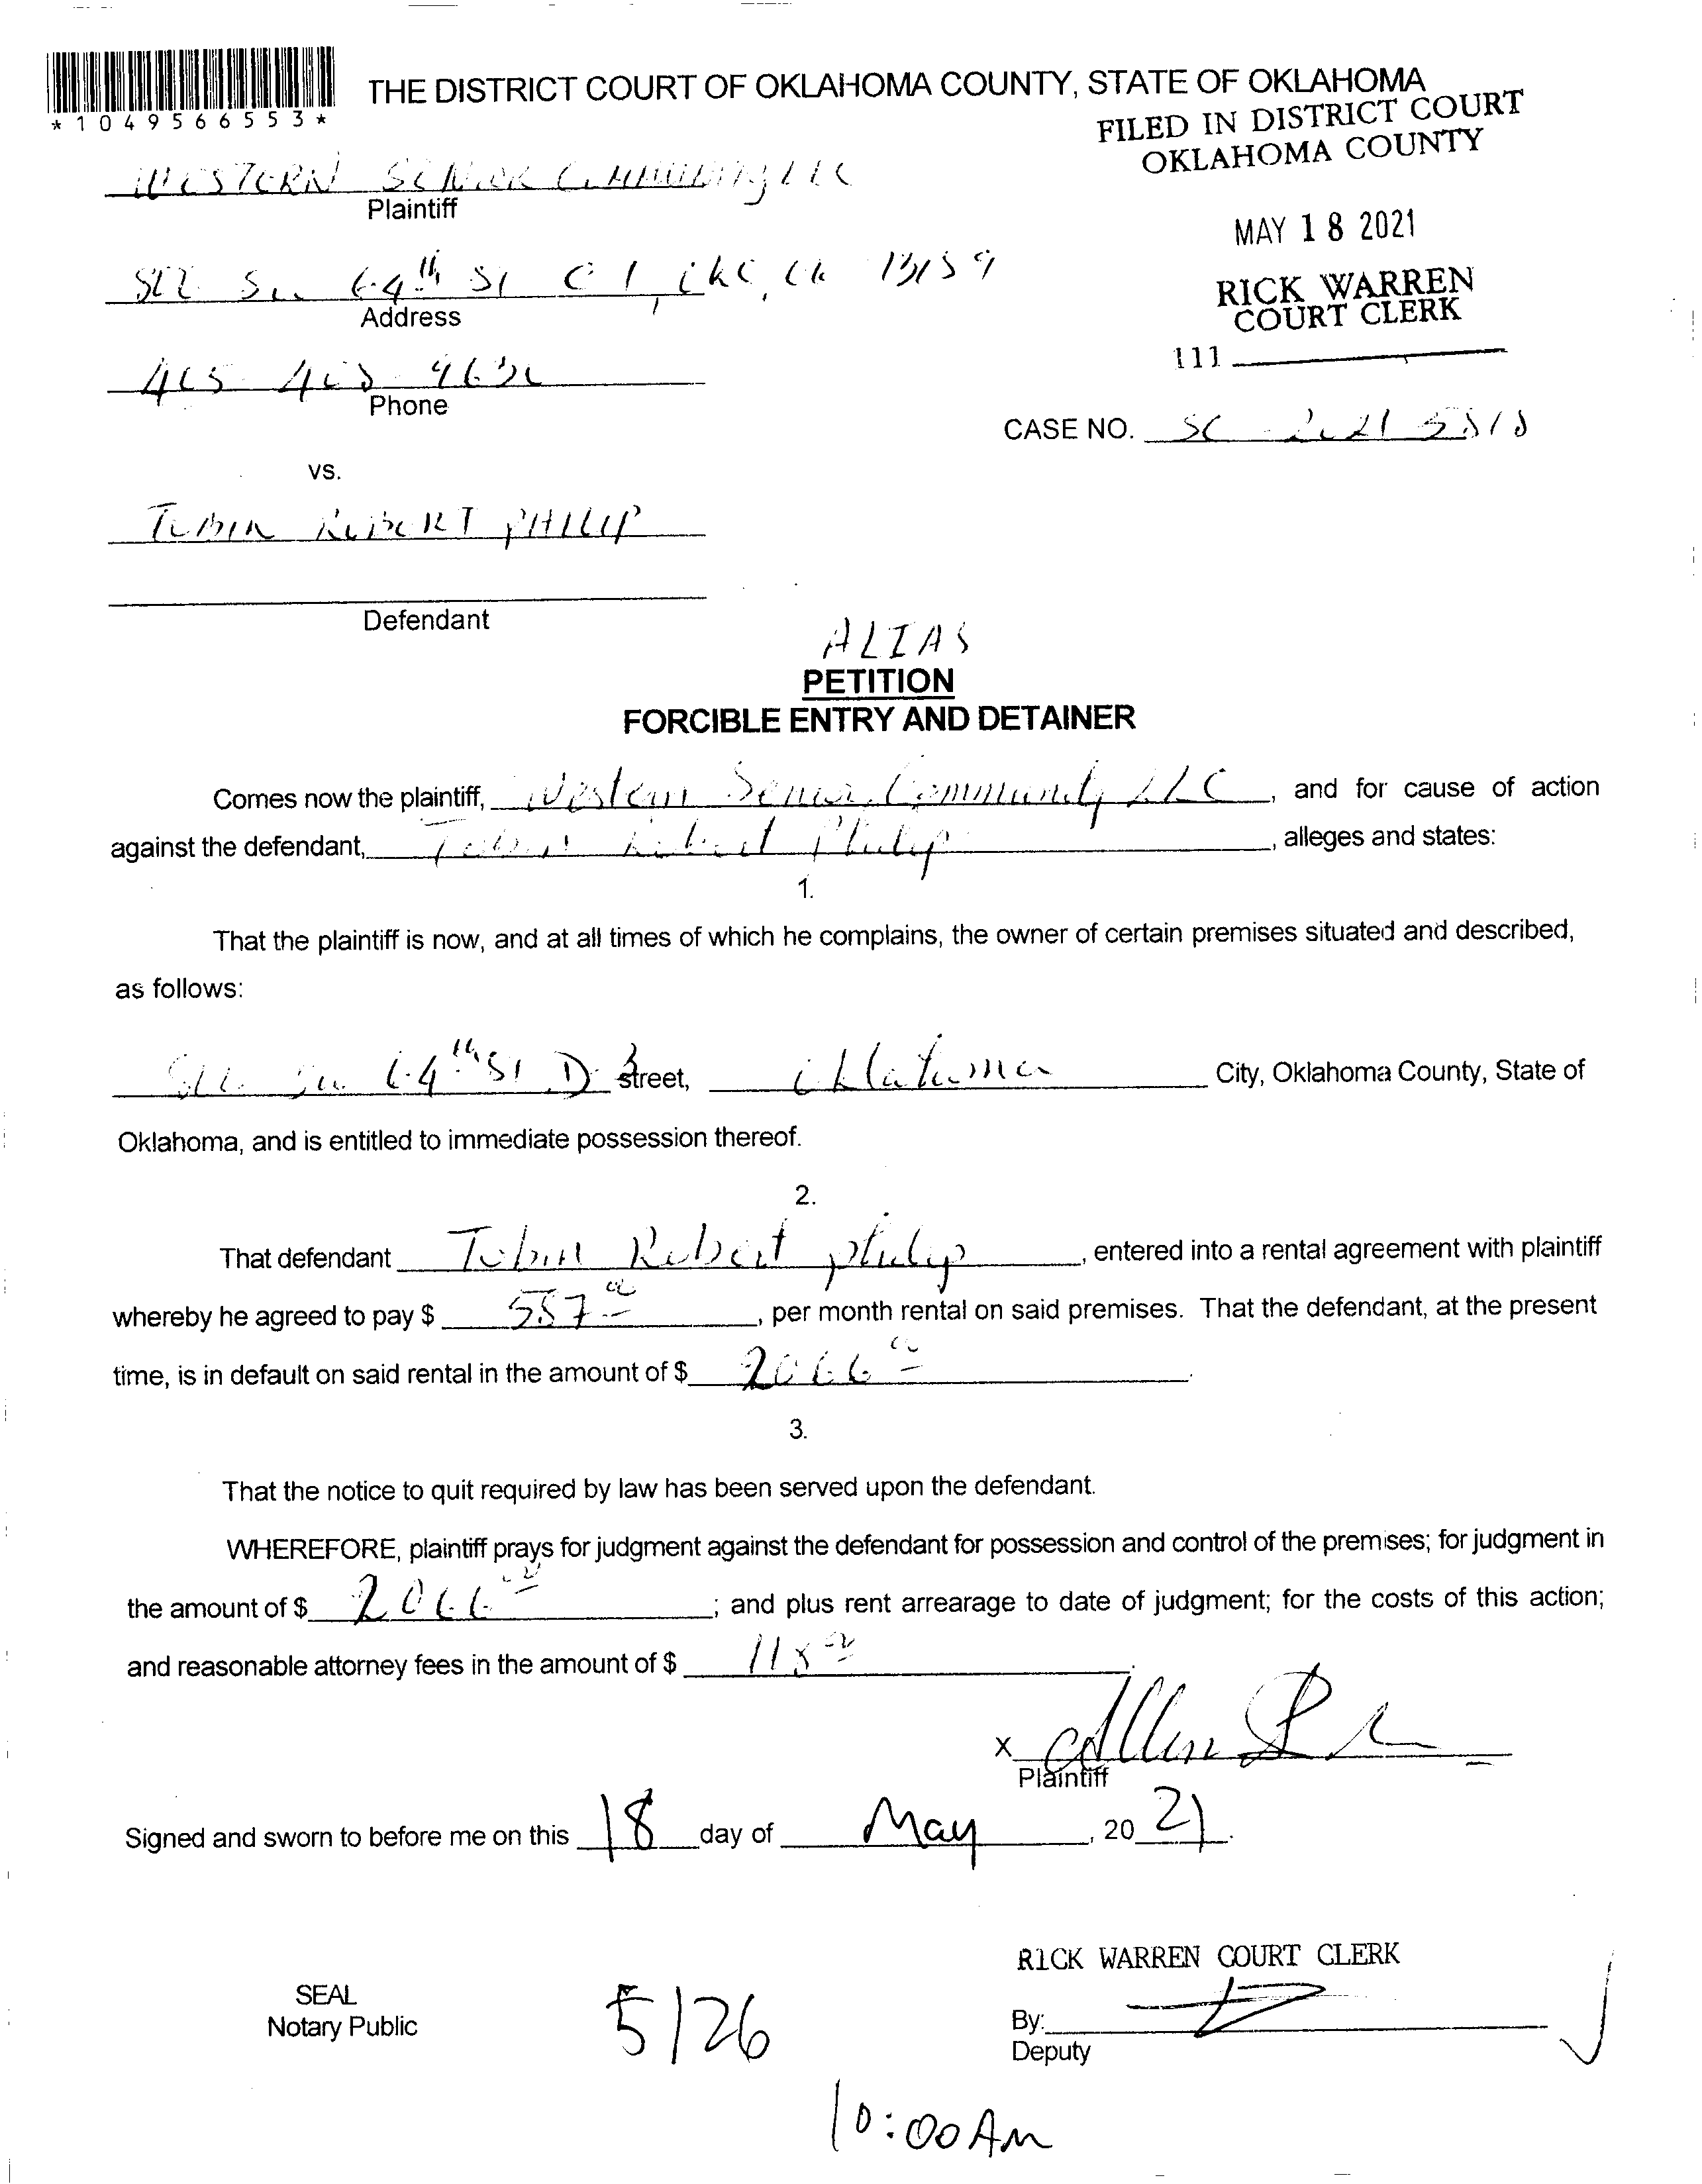 *1049566553*
THE DISTRICT COURT OF OKLAHOMA COUNTY, STATE OF OKLAHOMA
FILED IN DISTRICT COURT
OKLAHOMA COUNTY
WESTERN SENIOR COMMUNITY LLC
Plaintiff
MAY 18 2021
64th St
Address
RICK WARREN
COURT CLERK
111
405
Phone
CASE NO. SC - 2021
vs.
TOBIN ROBERT PHILIP
Defendant
ALIAS
PETITION
FORCIBLE ENTRY AND DETAINER
Comes now the plaintiff, Western Senior Community LLC, and for cause of action
against the defendant, Tobin Robert Philip, alleges and states:
1.
That the plaintiff is now, and at all times of which he complains, the owner of certain premises situated and described,
as follows:
64th St street, Oklahoma City, Oklahoma County, State of
Oklahoma, and is entitled to immediate possession thereof.
2.
That defendant Tobin Robert Philip, entered into a rental agreement with plaintiff
whereby he agreed to pay $ , per month rental on said premises. That the defendant, at the present
time, is in default on said rental in the amount of $ 2066 00.
3.
That the notice to quit required by law has been served upon the defendant.
WHEREFORE, plaintiff prays for judgment against the defendant for possession and control of the premises; for judgment in
the amount of $ 2066 00; and plus rent arrearage to date of judgment; for the costs of this action;
and reasonable attorney fees in the amount of $ .
X
Plaintiff
Signed and sworn to before me on this 18 day of May, 2021.
RICK WARREN COURT CLERK
SEAL
Notary Public
5/26
By:
Deputy
10:00 AM